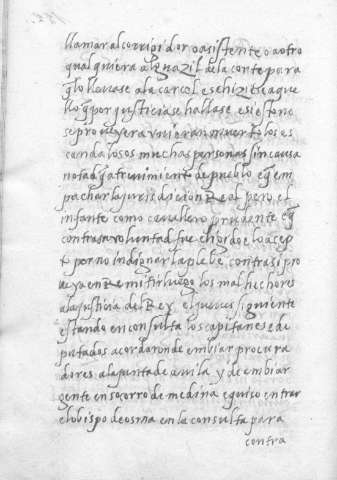 llamar al corrigidor o asistente o a otro
qualquiera alguazil de la corte para
q̃ lo llevase a la carcel e se hiziese aque
llo q̃ por justicia se hallase e si esto no
se proueyera uvieran muerto los es
candalosos muchas personas sin causa
notad q̃ atrevimiento de pueblo q̃ em
pachar la jurisdiçion Real pero el
infante como cavallero prudente q̃
contra su voluntad fue elegido e lo açep
to por no indignar la plebe contra si pro
veya en remitir luego los malhechores
a la justicia del Rey el jueves siguiente
estando en consulta los capitanes e de
putados acordaron de embiar procura
dores a la junta de avila y de embiar
gente en socorro de medina e quiso entrar
el obispo de osma en la consulta para
contra